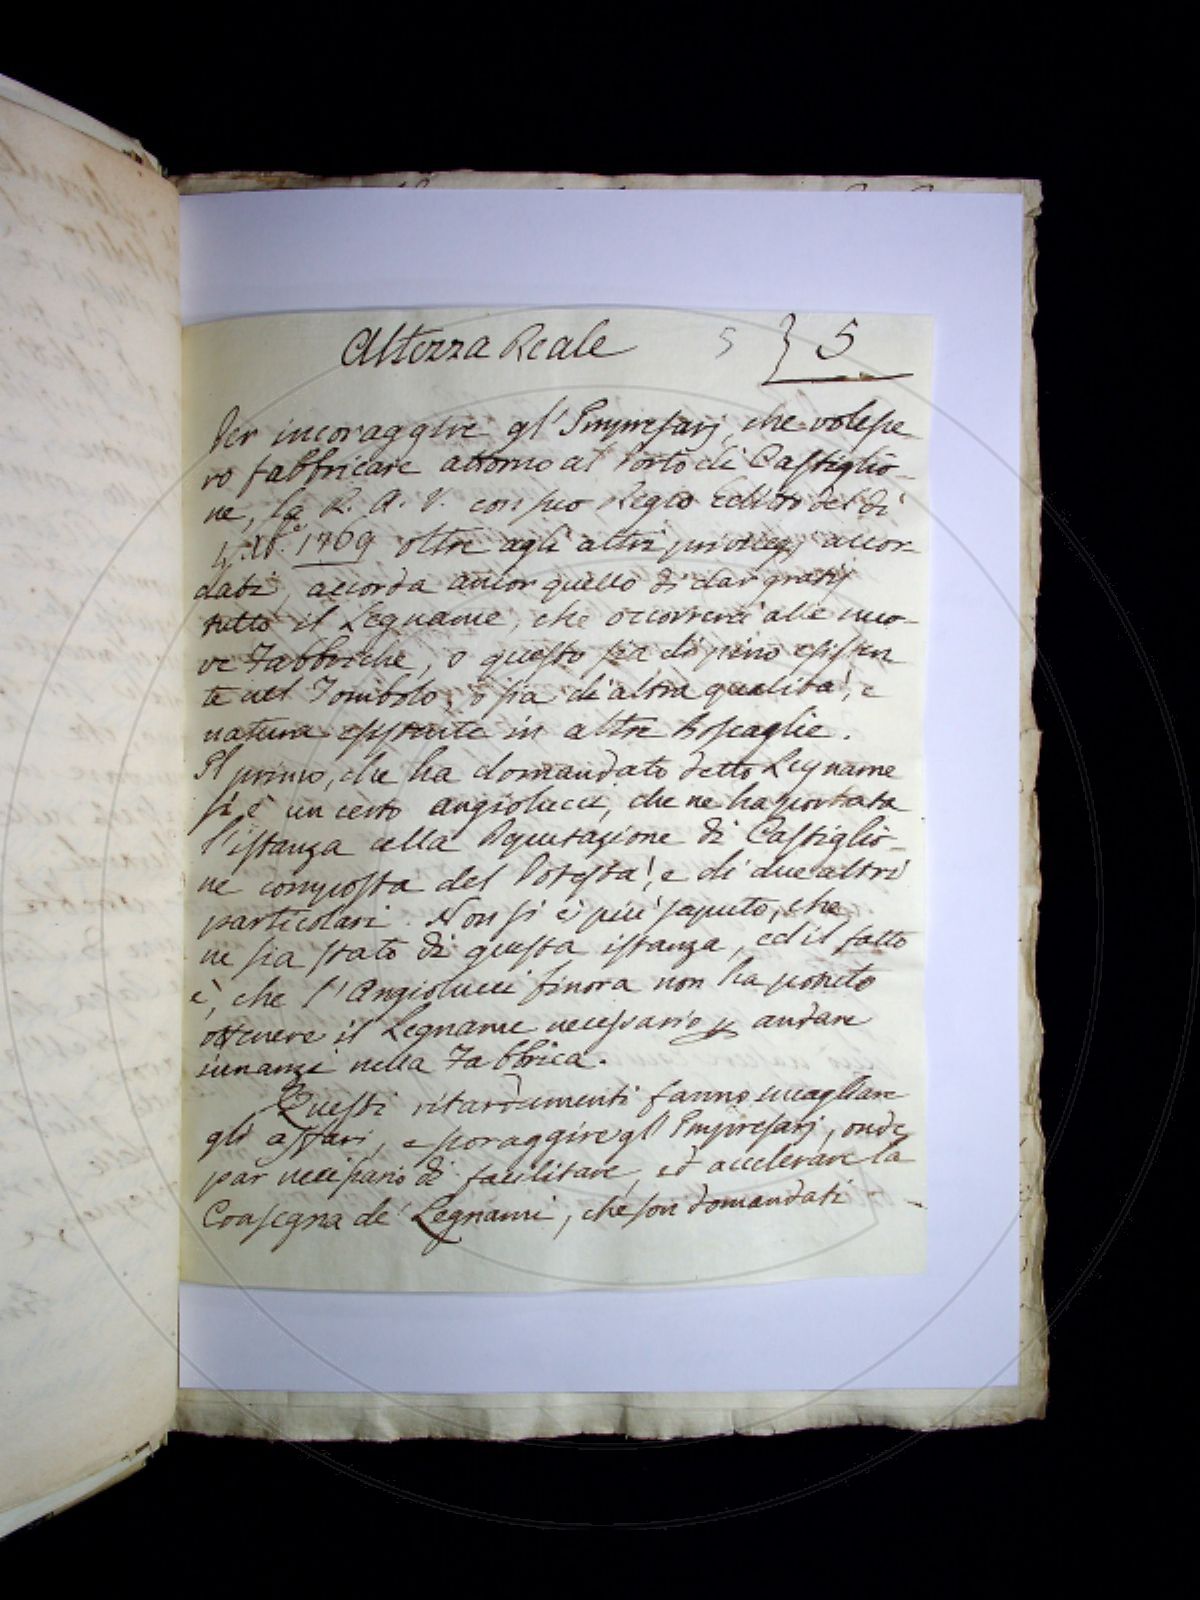 Altezza Reale 5 5
Per incoraggire gl'Impresarj, che volesse-
ro fabbricare attorno al Porto di Castiglio-
ne, la R. A. V. con suo Regio Editto del dì
1769 oltre agli altri privilegj accor-
dati, accorda ancor quello di dar gratis
tutto il Legname, che occorrerà alle nuo-
ve Fabbriche, o questo sia di pino esisten
te nel Tombolo, o sia di altra qualità, e
natura esistente in altre Boscaglie.
Il primo, che ha domandato detto Legname
si è un certo Angiolucci, che ne ha portata
l'istanza alla Deputazione di Castiglio-
ne composta del Potestà, e di due altri
particolari. Non si è più saputo, che
ne sia stato di questa istanza, ed il fatto
è, che l'Angiolucci finora non ha potuto
ottenere il Legname necessario p andare
innanzi nella Fabbrica.
Questi ritardamenti fanno incagliare
gli affari, e scoraggire gl'Impresarj, onde
par necessario di facilitare, ed accelerare la
Consegna de' Legnami, che son domandati